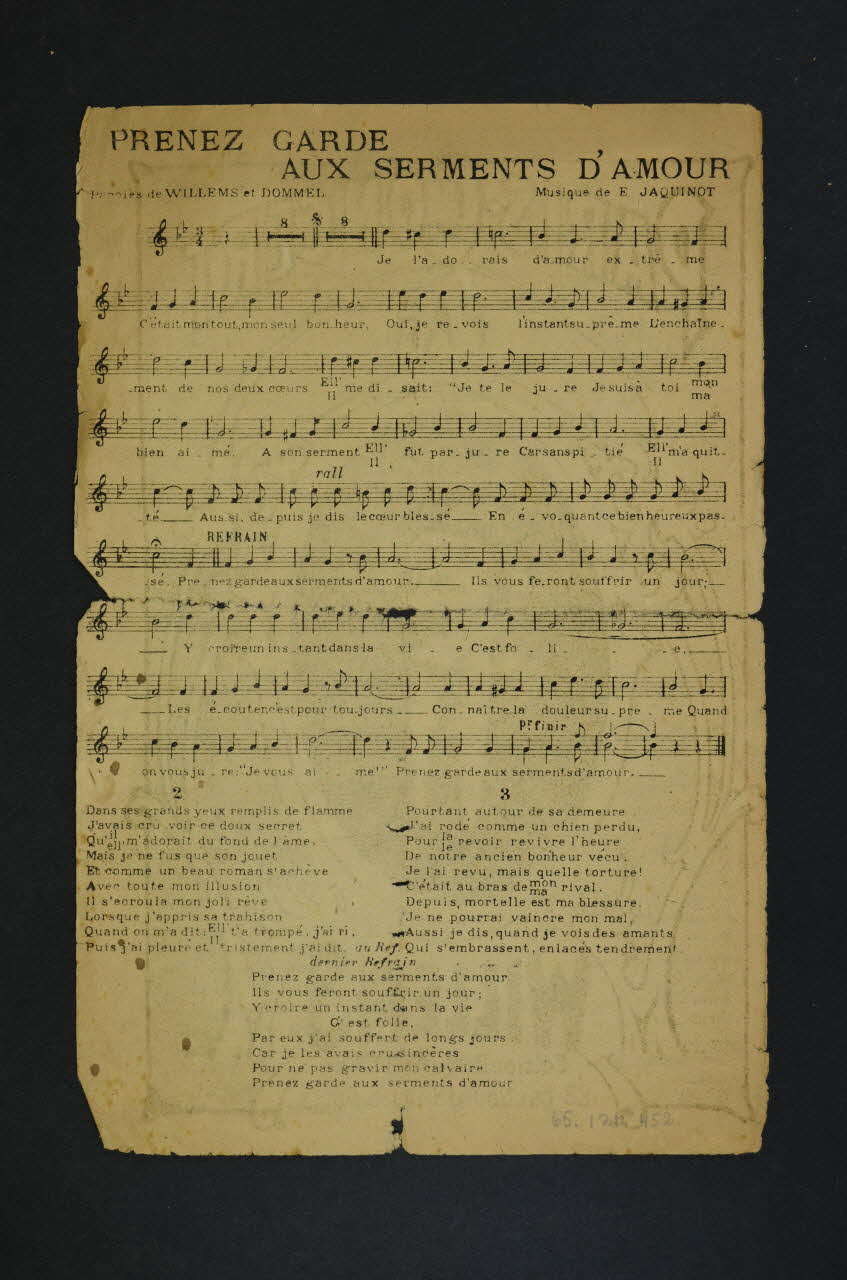 PRENEZ GARDE
AUX SERMENTS D'AMOUR
Paroles de WILLEMS et DOMMEL
Musique de E JAQUINOT
8 8
Je l'a_do_rais d'amour ex_trê_me
C'était mon tout, mon seul bon_heur, Oui, je re_vois l'instant su_prê_me L'enchaîne_
_ment de nos deux cœurs Ell' me di_sait: "Je te le ju_re Je suis à toi mon
Il ma
bien ai_mé. A son serment Ell' fut par_ju_re Car sans pi_tié Ell' m'a quit_
Il Il
rall
_té___ Aus_si, de_puis je dis le cœur bles_sé___ En é_vo_quant ce bien heureux pas_
REFRAIN
_sé. Pre_nez garde aux serments d'amour.___ Ils vous fe_ront souffrir un jour;___
___ Y croire un ins_tant dans la vi_e C'est fo_li_ _e,___
___Les é_couter, c'est pour tou_jours___ Con_naître la douleur su_prê_me Quand
Pr finir
on vous ju_re: "Je vous ai_me!" Prenez garde aux serments d'amour.___
2
Dans ses grands yeux remplis de flamme
J'avais cru voir ce doux secret
Qu'il m'adorait du fond de l'âme,
ell'
Mais je ne fus que son jouet
Et comme un beau roman s'achève
Avec toute mon illusion
Il s'écroula mon joli rêve
Lorsque j'appris sa trahison
Quand on m'a dit: Ell' t'a trompé, j'ai ri,
Il
Puis j'ai pleuré et tristement j'ai dit. au Ref.
3
Pourtant autour de sa demeure
J'ai rodé comme un chien perdu,
Pour la revoir revivre l'heure
le
De notre ancien bonheur vécu.
Je l'ai revu, mais quelle torture!
C'était au bras de mon rival.
ma
Depuis, mortelle est ma blessure,
Je ne pourrai vaincre mon mal,
Aussi je dis, quand je vois des amants
Qui s'embrassent, enlacés tendrement.
dernier Refrain
Prenez garde aux serments d'amour
Ils vous feront souffrir un jour;
Y croire un instant dans la vie
C'est folie,
Par eux j'ai souffert de longs jours
Car je les avais cru sincères
Pour ne pas gravir mon calvaire
Prenez garde aux serments d'amour